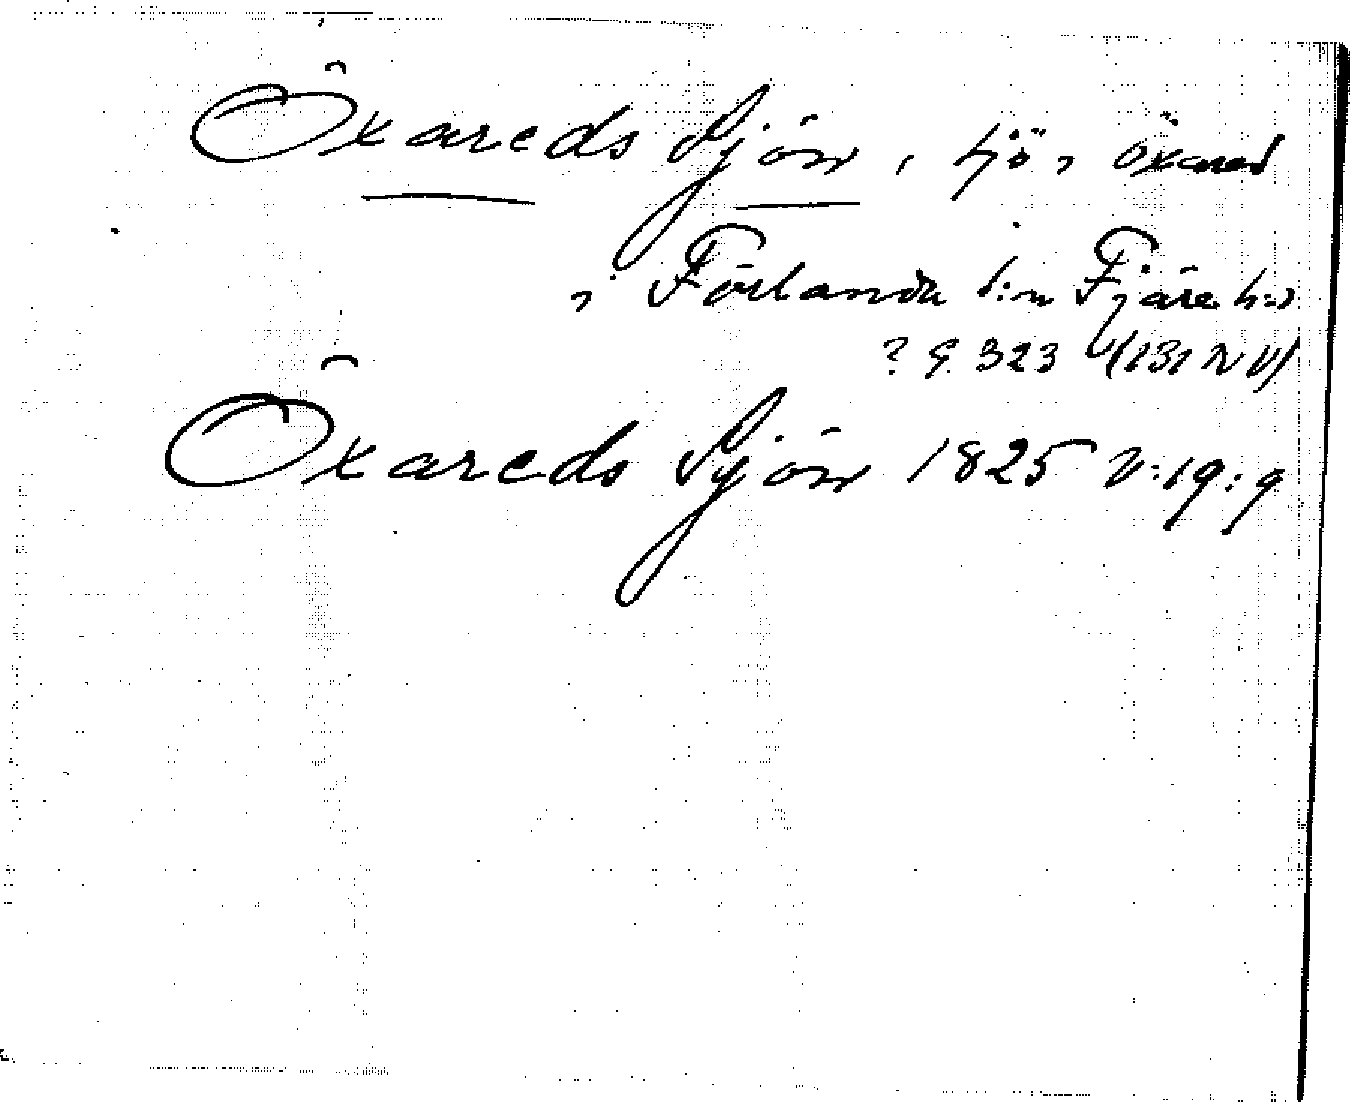 Öxareds Sjön, sjö i Öxared
i Förlanda s:n Fjäre h:d
? G. 323 (131 NV)
Öxareds Sjön 1825 V:19:9